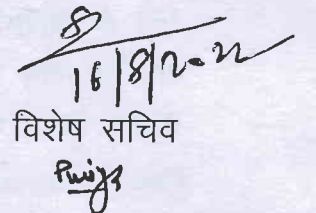 16/8/2022
विशेष सचिव